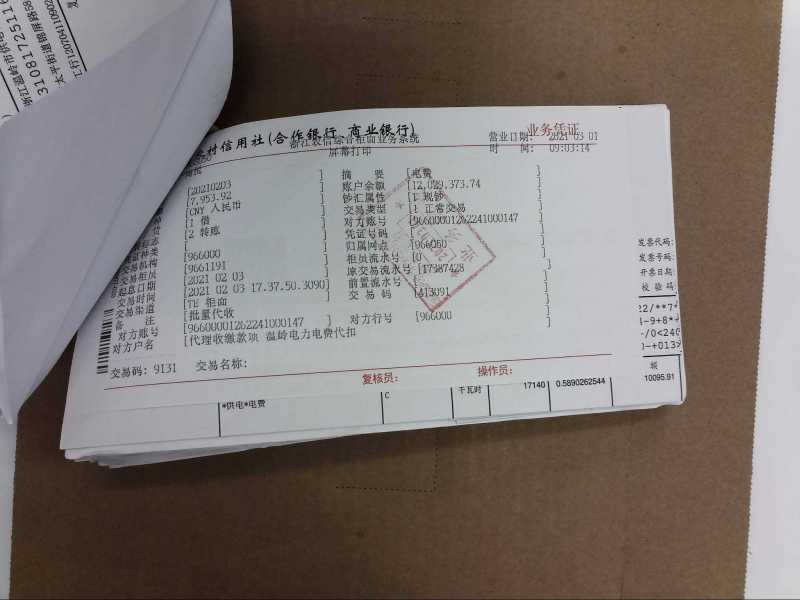 浙江温岭市供电
31081725116
太平街道锦屏路68
汇行1207041109020
村信用社(合作银行、商业银行)
业务凭证
浙江农信综合柜面业务系统
屏幕打印
营业日期: 2021 03 01
时 间: 09:03:14
[20210203 ] 摘 要 [电费 ]
[7,953.92 ] 账户余额 [12,029,373.74 ]
[CNY 人民币 ] 钞汇属性 [1 现钞 ]
[1 借 ] 交易类型 [1 正常交易 ]
[2 转账 ] 对方账号 [966000012622410000147 ]
[ ] 凭证号码 [ ]
种类 [966000 ] 归属网点 [966050 ]
交易机构 [9661191 ] 柜员流水号 [0 ]
交易柜员 [2021 02 03 ] 原交易流水号 [17387428 ]
起息日期 [2021 02 03 17.37.50.3090] 前置流水号 [ ]
交易时间 [TE 柜面 ] 交易码 [413091 ]
交易渠道 [批量代收 ]
备 注 [96600001262241000147 ] 对方行号 [966000 ]
对方账号 [代理收缴款项 温岭电力电费代扣 ]
对方户名
交易码: 9131 交易名称:
复核员: 操作员:
发票代码:
发票号码:
开票日期:
校验码:
22/**7
4-9+8*
-/0<240
0-+013>
额
*供电*电费 C 千瓦时 17140 0.5890262544 10095.91